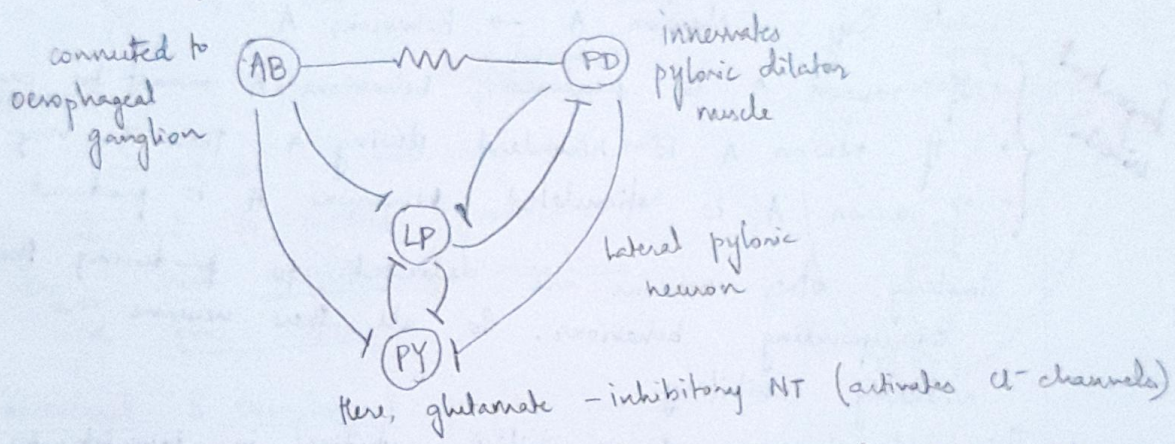 connected to
oesophageal
ganglion
AB
PD
innervates
pyloric dilator
muscle
LP
Lateral pyloric
neuron
PY
Here, glutamate - inhibitory NT (activates Cl⁻ channels)